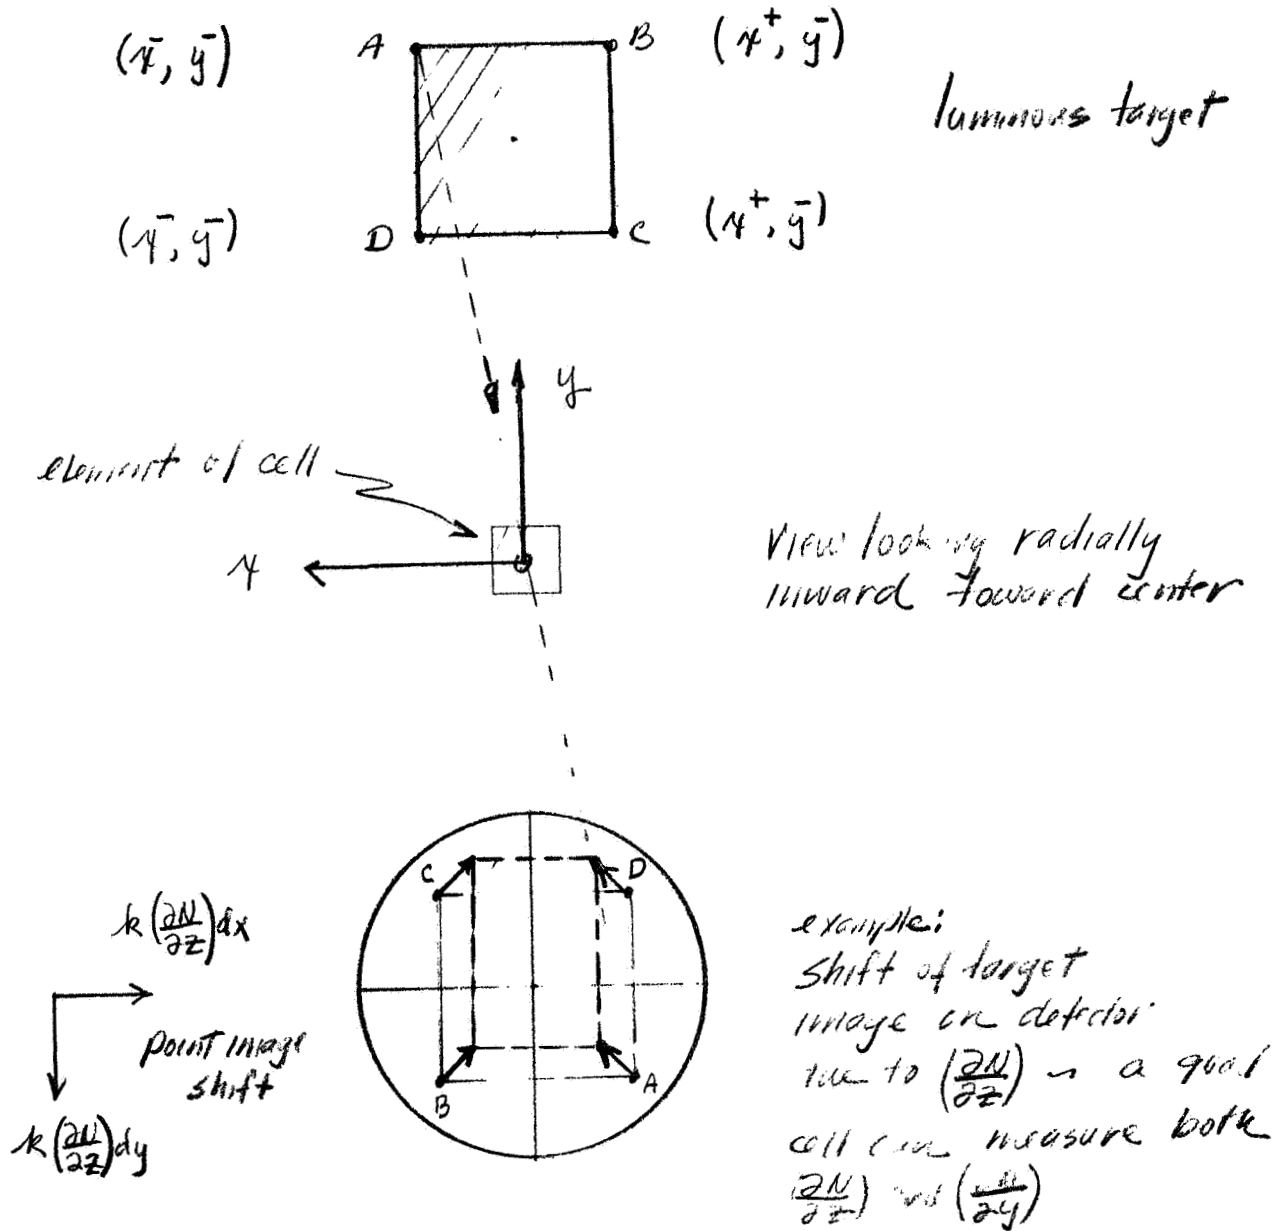 (x⁻, y⁻) A B (x⁺, y⁻)
luminous target
(x⁻, y⁻) D C (x⁺, y⁻)
y
element of cell
x
View looking radially
inward toward center
C D
k(∂N/∂z)dx
point image
shift
k(∂N/∂z)dy
B A
example:
shift of target
image on detector
due to (∂N/∂z) a quad
cell can measure both
∂N/∂z)